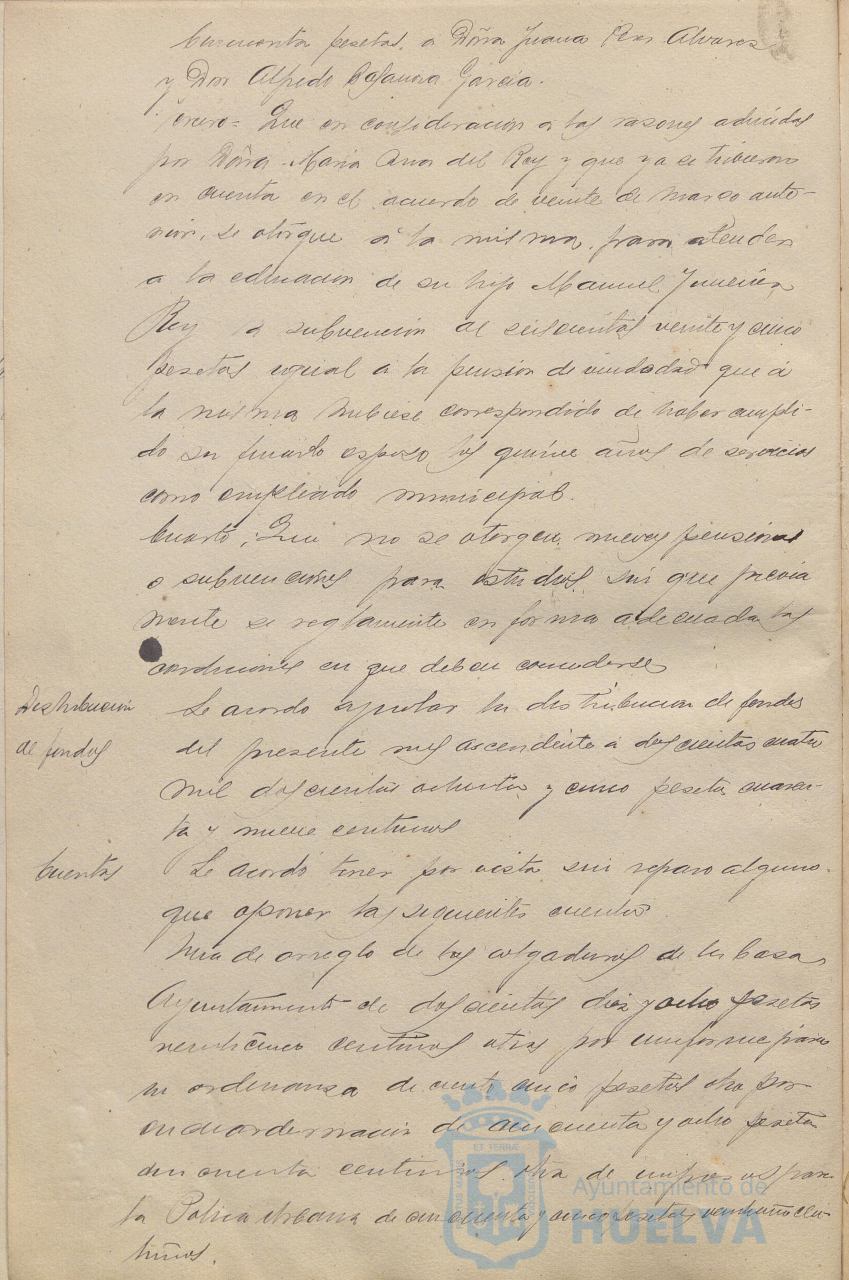 Cincuenta pesetas, a Doña Juana Rios Alvarez
y Don Alfredo Casanova Garcia.
Tercero = Que en consideracion a las razones aducidas
por Doña Maria Ana del Rey y que ya se tuvieron
en cuenta en el acuerdo de veinte de Marzo ante-
rior, se otorgue á la misma, para atender
a la educacion de su hijo Manuel Jimenez
Rey la subvención de seiscientas veinte y cinco
pesetas igual a la pension de viudedad que á
la misma hubiese correspondido de haber cumpli-
do su finado esposo los quince años de servicios
como empleado municipal.
Cuarto, Que no se otorguen nuevas pensiones
o subvenciones para estudios sin que previa
mente se reglamente en forma adecuada las
condiciones en que deben concederse
Distribucion
de fondos
Se acordo aprobar la distribucion de fondos
del presente mes ascendente a doscientas cuatro
mil doscientas ochenta y cinco pesetas cuaren-
ta y nueve centimos
Cuentas
Se acordó tener por vista sin reparo alguno
que oponer las siguientes cuentas
Una de arreglo de las colgaduras de la Casa
Ayuntamiento de doscientas diez y ocho pesetas
veinticinco centimos otra por uniforme para
un ordenanza de ciento cinco pesetas otra por
encuadernacion de cincuenta y ocho pesetas
cincuenta centimos otra de impresos para
la Policia Urbana de cincuenta y cinco pesetas veintiuno cen-
timos.
Ayuntamiento de
HUELVA